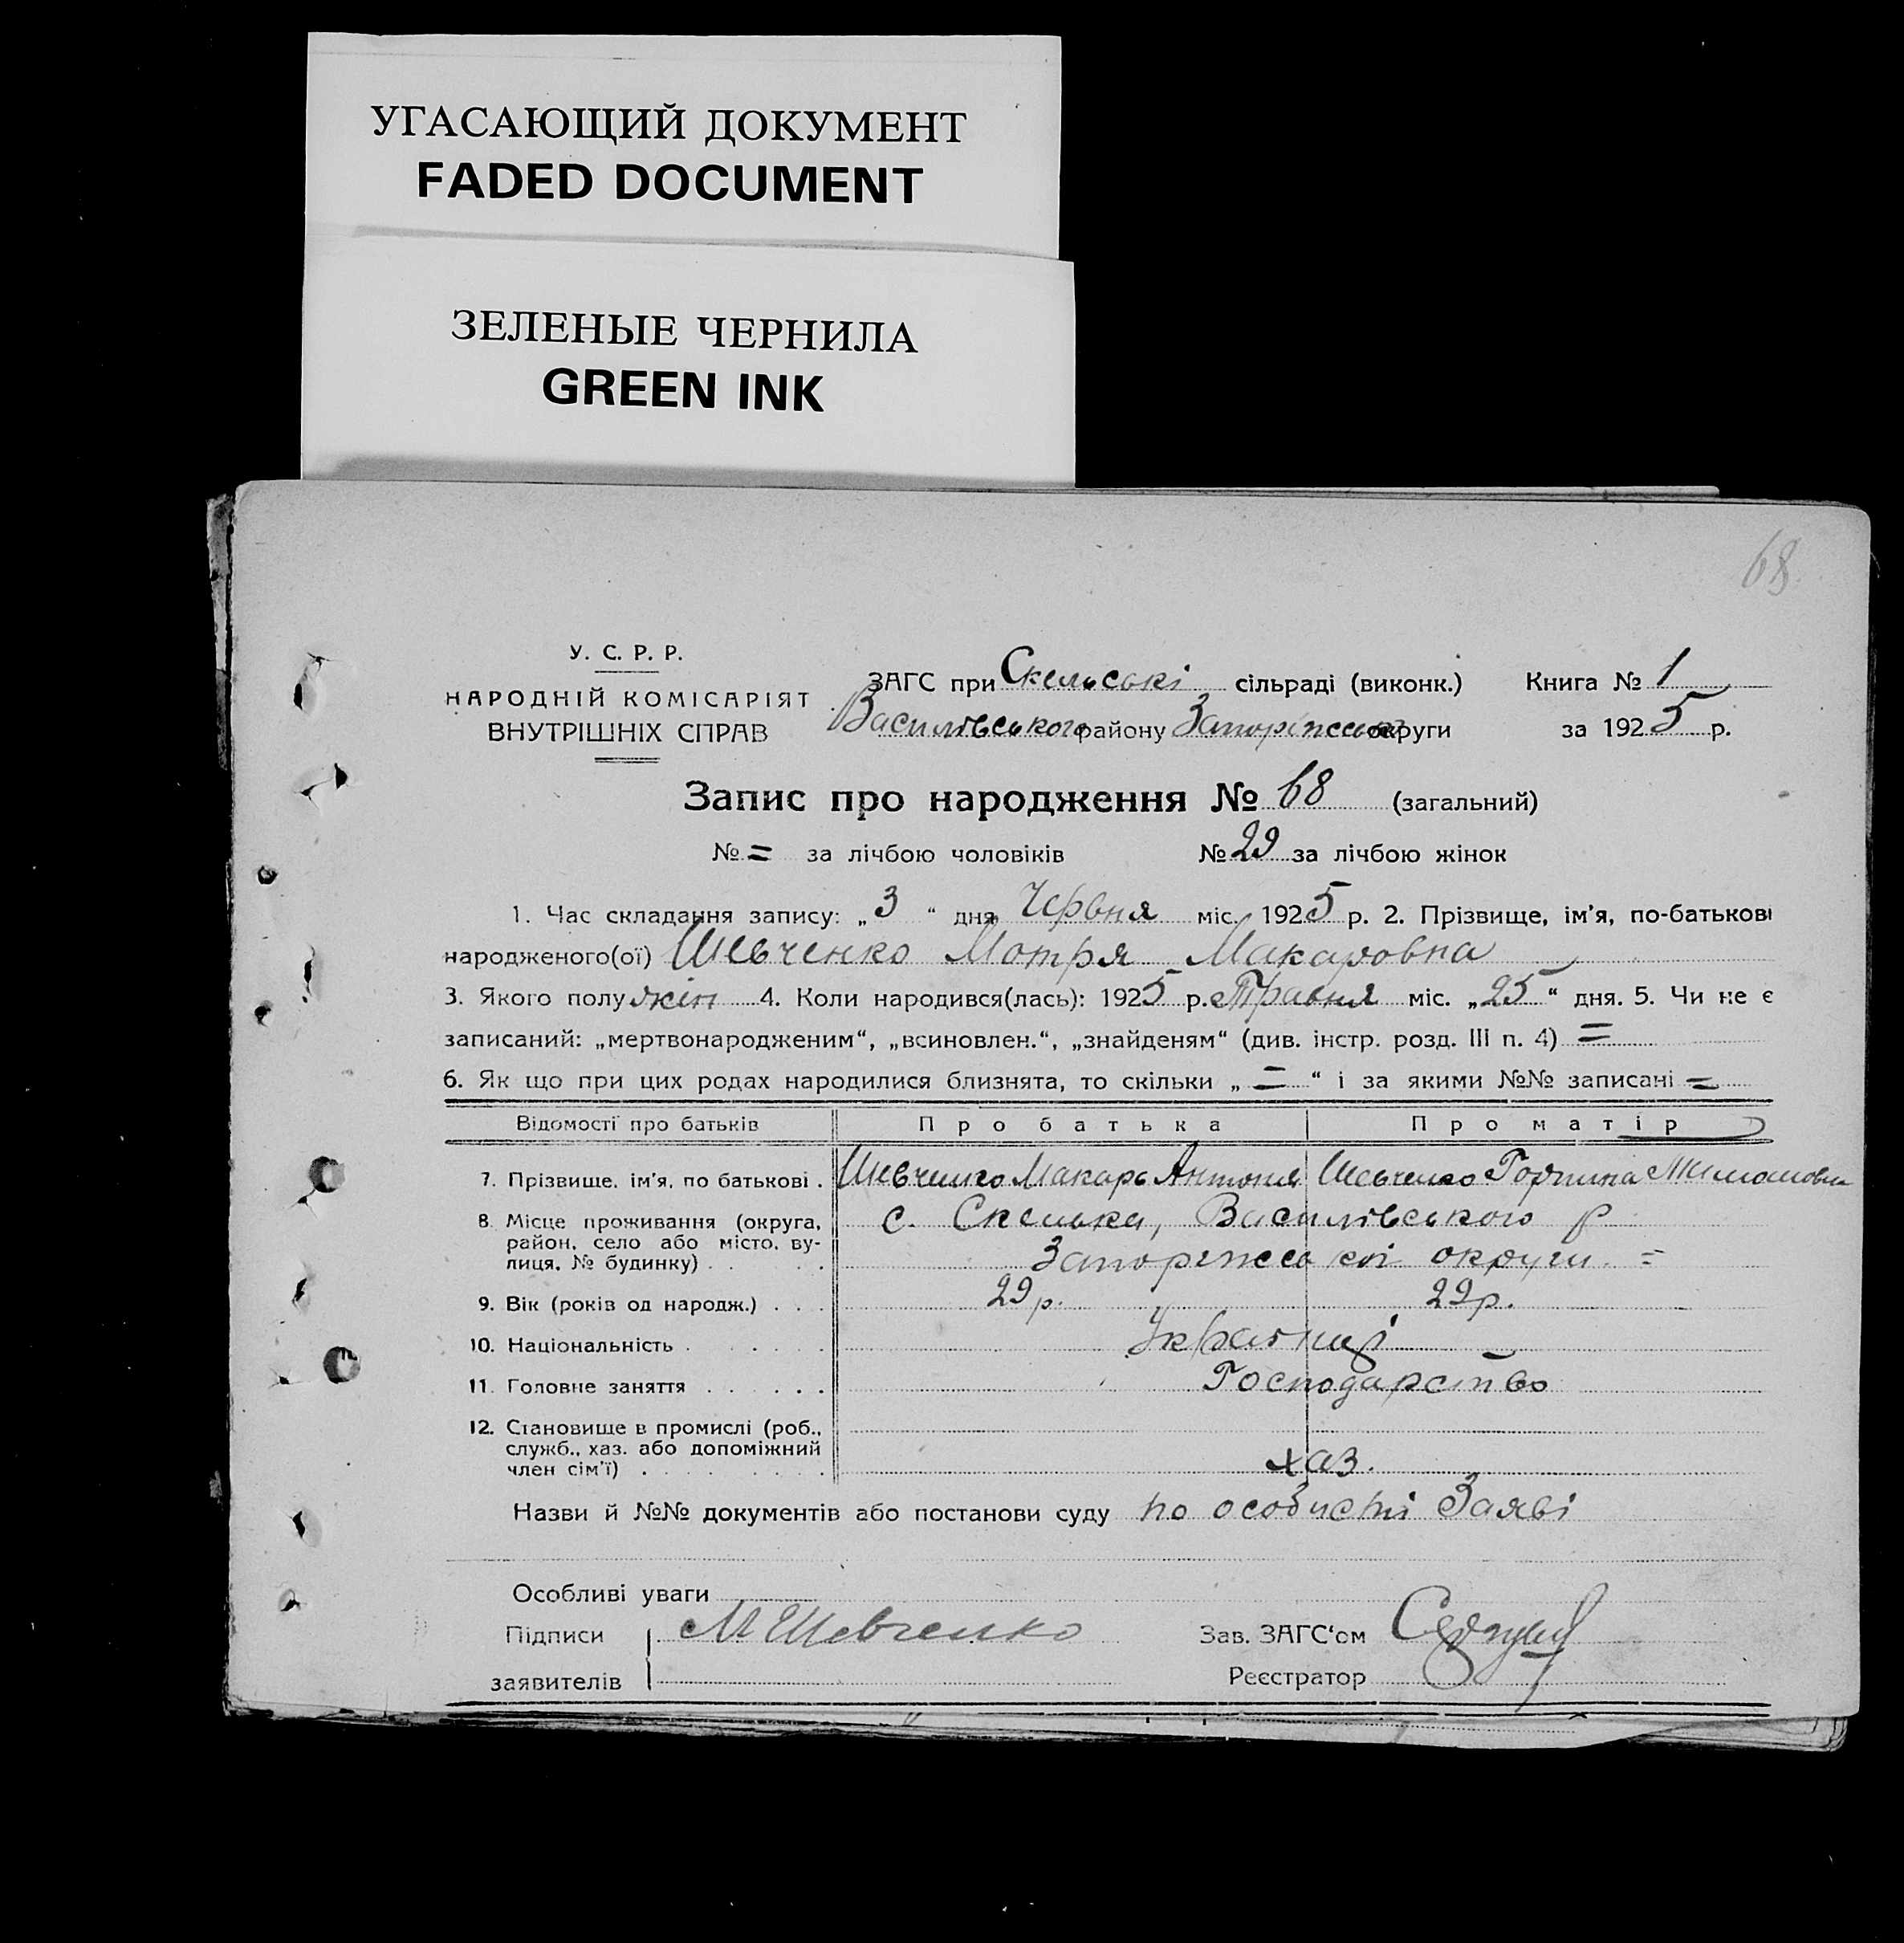 УГАСАЮЩИЙ ДОКУМЕНТ
FADED DOCUMENT
ЗЕЛЕНЫЕ ЧЕРНИЛА
GREEN INK
68
У. С. Р. Р.
НАРОДНІЙ КОМІСАРІЯТ
ВНУТРІШНІХ СПРАВ
ЗАГС при Скельські сільраді (виконк.) Книга № 1
Василівського району Запоріжськ округи за 1925 р.
Запис про народження № 68 (загальний)
№ = за лічбою чоловіків № 29 за лічбою жінок
1. Час складання запису: „3“ дня Червня міс. 1925 р. 2. Прізвище, ім'я, по-батькові
народженого(ої) Шевченко Мотря Макаровна
3. Якого полу жін 4. Коли народився(лась): 1925 р. Травня міс. „25“ дня. 5. Чи не є
записаний: „мертвонародженим“, „всиновлен.“, „знайденям“ (див. інстр. розд. III п. 4) =
6. Як що при цих родах народилися близнята, то скільки „=“ і за якими №№ записані =
Відомості про батьків Про батька Про матір
7. Прізвище, ім'я, по батькові . Шевченко Макарь Антонів Шевченко Горпина
8. Місце проживання (округа, с. Скелька, Василівського р
район, село або місто, ву-
лиця, № будинку) . . . . Запоріжської округи =
9. Вік (років од народж.) . . . 29 р. 29 р.
10. Національність . . . . . Українці
11. Головне заняття . . . . . Господарство
12. Становище в промислі (роб.,
служб., хаз. або допоміжний
член сім'ї) . . . . . . . хаз.
Назви й №№ документів або постанови суду по особисті Заяві
Особливі уваги
Підписи М Шевченко Зав. ЗАГС'ом
заявителів Реєстратор